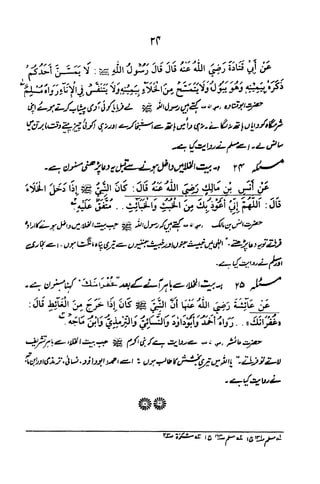 ۲۳
عَنْ أَبِيْ قَتَادَةَ رَضِيَ اللهُ عَنْهُ قَالَ قَالَ رَسُوْلُ اللهِ ﷺ : لَا يَمَسَّنَّ أَحَدُكُمْ
ذَكَرَهُ بِيَمِيْنِهِ وَهُوَ يَبُوْلُ وَلَا يَتَمَسَّحْ مِنَ الْخَلَاءِ بِيَمِيْنِهِ وَلَا يَتَنَفَّسْ فِي الْإِنَاءِ رَوَاهُ مُسْلِمٌ
حضرت ابو قتادہ کہتے ہیں رسول اللہ ﷺ نے فرمایا کوئی آدمی پیشاب کرتے ہوئے اپنی
شرمگاہ کو دایاں ہاتھ نہ لگائے نہ ہی دائیں ہاتھ سے استنجا کرے اور نہ ہی کوئی چیز پیتے وقت برتن میں
سانس لے۔ اسے مسلم نے روایت کیا ہے۔
مسئلہ ۲۴ بیت الخلاء میں داخل ہونے سے قبل یہ دعا پڑھنی مسنون ہے۔
عَنْ أَنَسِ بْنِ مَالِكٍ رَضِيَ اللهُ عَنْهُ قَالَ: كَانَ النَّبِيُّ ﷺ إِذَا دَخَلَ الْخَلَاءَ
قَالَ: اَللّٰهُمَّ إِنِّيْ أَعُوْذُ بِكَ مِنَ الْخُبُثِ وَالْخَبَائِثِ . . مُتَّفَقٌ عَلَيْهِ
حضرت انس بن مالک کہتے ہیں کہ رسول اللہ ﷺ جب بیت الخلاء میں داخل ہونے کا ارادہ
فرماتے تو یہ دعا پڑھتے۔ الٰہی میں خبیث جنوں اور خبیث جنیوں سے تیری پناہ مانگتا ہوں۔ اسے بخاری
اور مسلم نے روایت کیا ہے۔
مسئلہ ۲۵ بیت الخلاء سے باہر آنے کے بعد "غُفْرَانَكَ" کہنا مسنون ہے۔
عَنْ عَائِشَةَ رَضِيَ اللهُ عَنْهَا أَنَّ النَّبِيَّ ﷺ كَانَ إِذَا خَرَجَ مِنَ الْغَائِطِ قَالَ:
«غُفْرَانَكَ» . . رَوَاهُ أَحْمَدُ وَأَبُوْدَاوُدَ وَالنَّسَائِيُّ وَالتِّرْمِذِيُّ وَابْنُ مَاجَه
حضرت عائشہ سے روایت ہے کہ نبی اکرم ﷺ جب بیت الخلاء سے باہر تشریف
لاتے تو فرماتے۔ یا اللہ میں تیری بخشش کا طالب ہوں اسے احمد ابو داؤد، نسائی، ترمذی اور ابن ماجہ
نے روایت کیا ہے۔